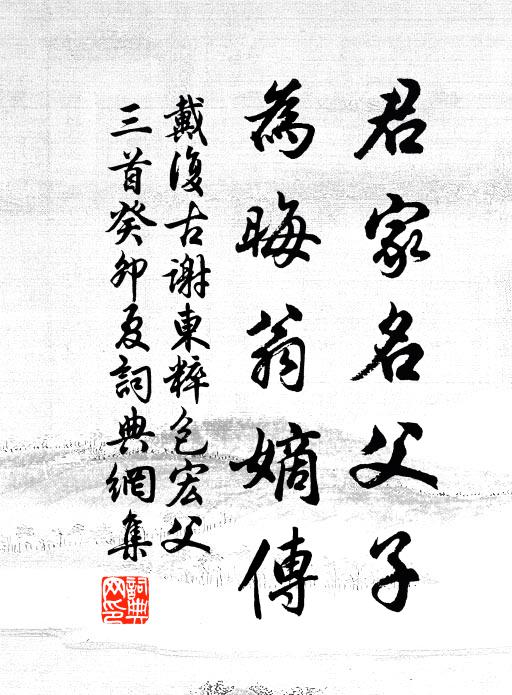 君家名父子
為晦翁嫡傳
戴復古謝東粹包宏父
三首癸卯夏詞典網集
詞典网印